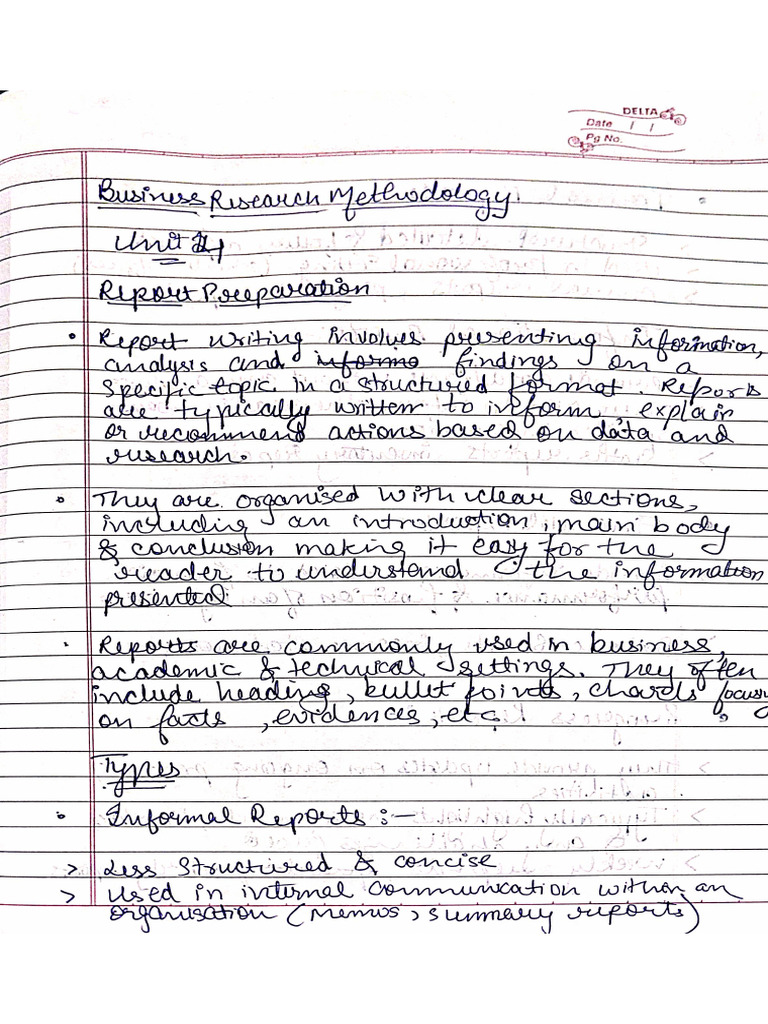 DELTA
Date / /
Pg No.
Business Research Methodology
Unit 4
Report Preparation
• Report writing involves presenting information,
analysis and informa findings on a
specific topic in a structured format. Reports
are typically written to inform, explain
or recommend actions based on data and
research.
• They are organised with clear sections,
including an introduction, main body
& conclusion making it easy for the
reader to understand the information
presented
• Reports are commonly used in business,
academic & technical settings. They often
include heading, bullet points, chards focusing
on facts, evidences, etc.
Types
• Informal Reports :-
> Less structured & concise
> Used in internal communication within an
organisation (Memos, summary reports)